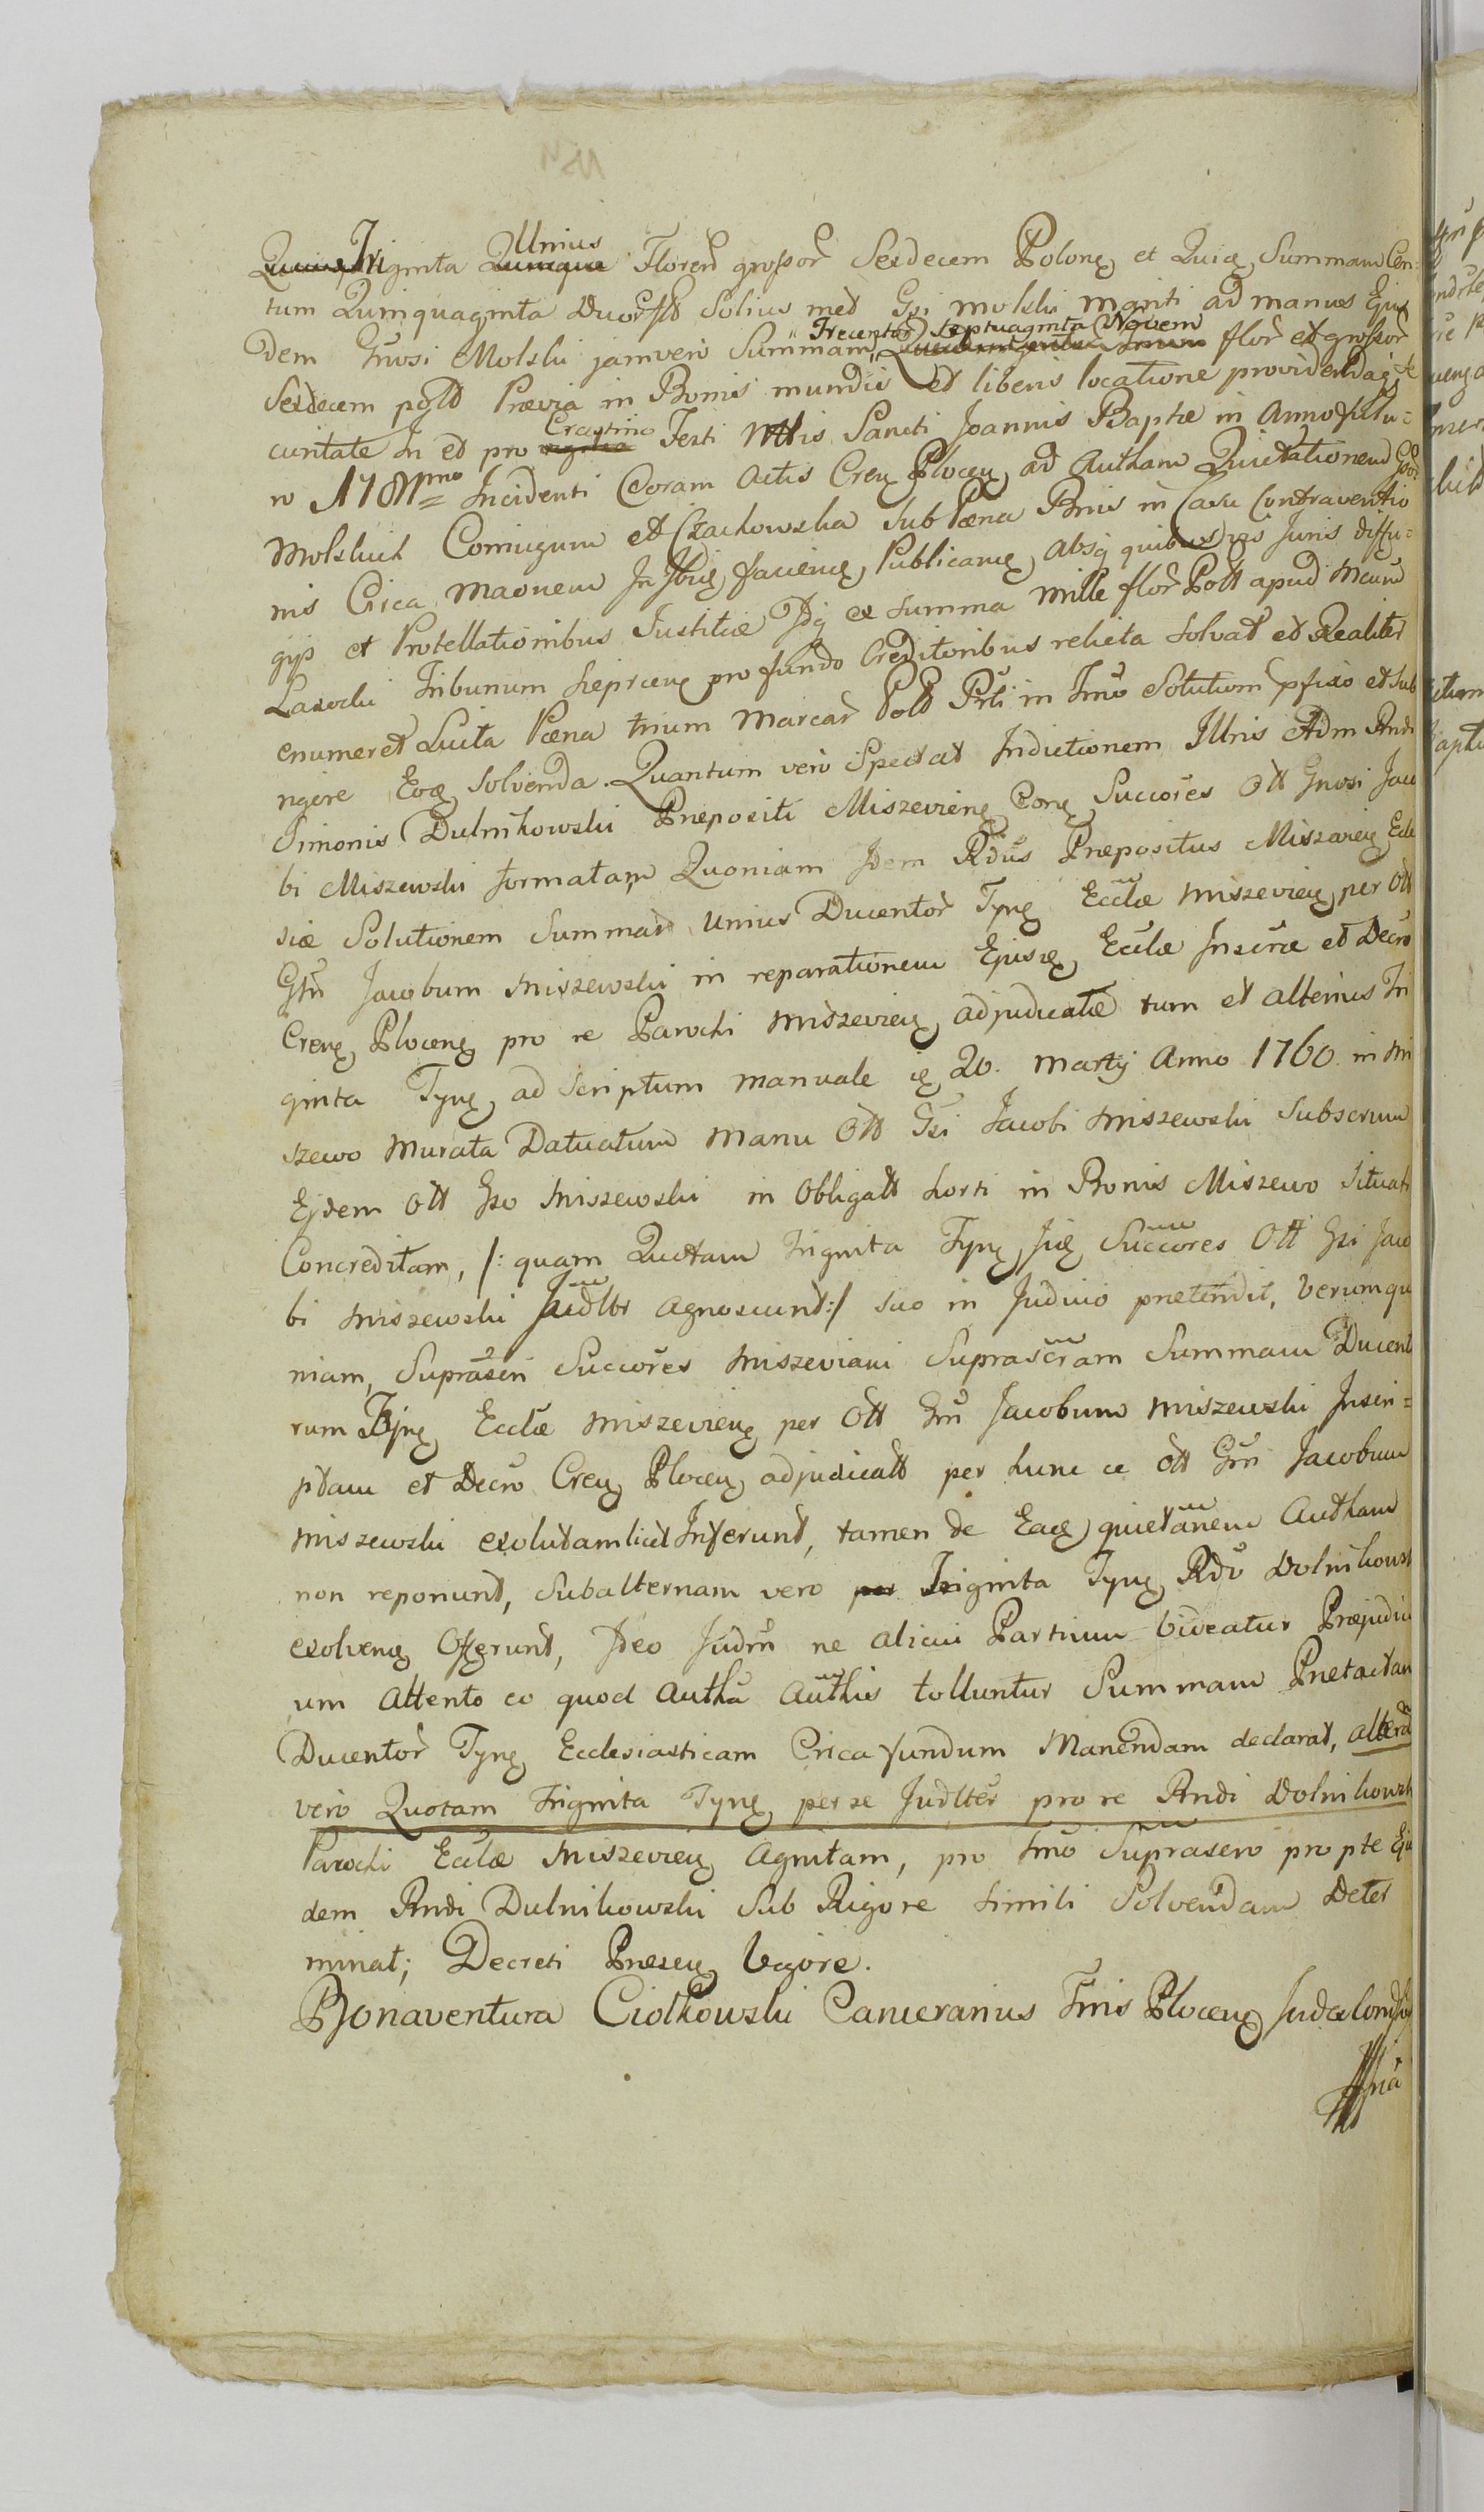 Triginta Unius Floren grossor Sexdecem Polonę et Quię Summam Cen=
tum Quinquaginta Duor flo Solius med Gsi Molski mariti ad manus Ejus
dem Gnosi Molski jamvero Summam Trecentor Septuaginta Novem flor et grossor
Sexdecem poltt Prævia in Bonis mundis et liberis locatione providendaq se
curitate In et pro Crastino Festi Nttis Sancti Joannis Baptæ in Anno futu=
ro 1781mo Incidenti Coram Actis Creń Plocen ad Autham Quietationem Gsor
Molskich Coniugum et Czachowska sub Pæna Bnis in Casu Contraventio
nis Circa maonem In Jbuę facienę Publicanę, absq quibusvis Juris diffu=
gijs et Protellationibus Justitiæ Idq ex Summa mille flor Poltt apud
Tribunum pro fundo Creditoribus relicta Solvat et Realiter
enumeret Luita Pæna trium Marcar Poltt Prti in Tmo Solutiom pfixo et sub
ngore Eoę solvenda. Quantum vero Spectat Indictionem Illris Adm Rndi
Simonis Dulnikowski Præpositi Miszevienę Conę Succores Ott Gnosi Jaco
bi Miszewski formatam Quoniam Idem Rdus Præpositus Miszevień Eccle
siæ Solutionem Summar unius Ducentor Tynę Ecclæ Miszevień per Ott
Gsn Jacobum Miszewski in reparationem Ejusę Ecclæ Inscræ et Decro
Crenę Plocenę pro re Parochi Miszevień adjudicatæ tum et alterius Tri
ginta Tynę ad Scriptum manuale ię 20. Martij Anno 1760. in Mi
szewo Murata Datuatum manu Ott Gsi Jacobi Miszewski Subscrum
Ejdem Ott Gso Miszewski in Obligatt horti in Bonis Miszewo Situati
Concreditam, /: quam Quotam Triginta Tynę Iię Succores Ott Gsi Jaco
bi Miszewski Judltr agnoscunt:/ suo in Judicio prætendit, Verum quo
niam, Suprascri Succores Miszeviani Suprascram Summam Ducento
rum Tynę Ecclæ Miszevienę per Ott Gsn Jacobum Miszewski Inscri=
ptam et Decro Creń Plocen adjudicatt per hunc ce Ott Gsn Jacobum
Miszewski exolutam licet Inferunt, tamen de Eaę quietanem Autham
non reponunt, Subalternam vero Triginta Tynę Rdo Dolnikowsk
exolvenę Offerunt, Ideo Judm ne alicui Partium Videatur Præjudici
um attento eo quod Autha Authis tolluntur Summam Prætactam
Ducentor Tynę Ecclesiasticam Circa fundum Manendam declarat, alteram
vero Quotam Triginta Tynę per se Judlter pro re Rndi Dolnikowsk
Parochi Ecclæ Miszevień Agnitam, pro Tmo Suprascro pro pte Eju
dem Rndi Dulnikowski Sub Rigore Simili Solvendam Deter
minat; Decreti Præsenę Vigore.
Bonaventura Ciołkowski Camerarius Tris Plocenę